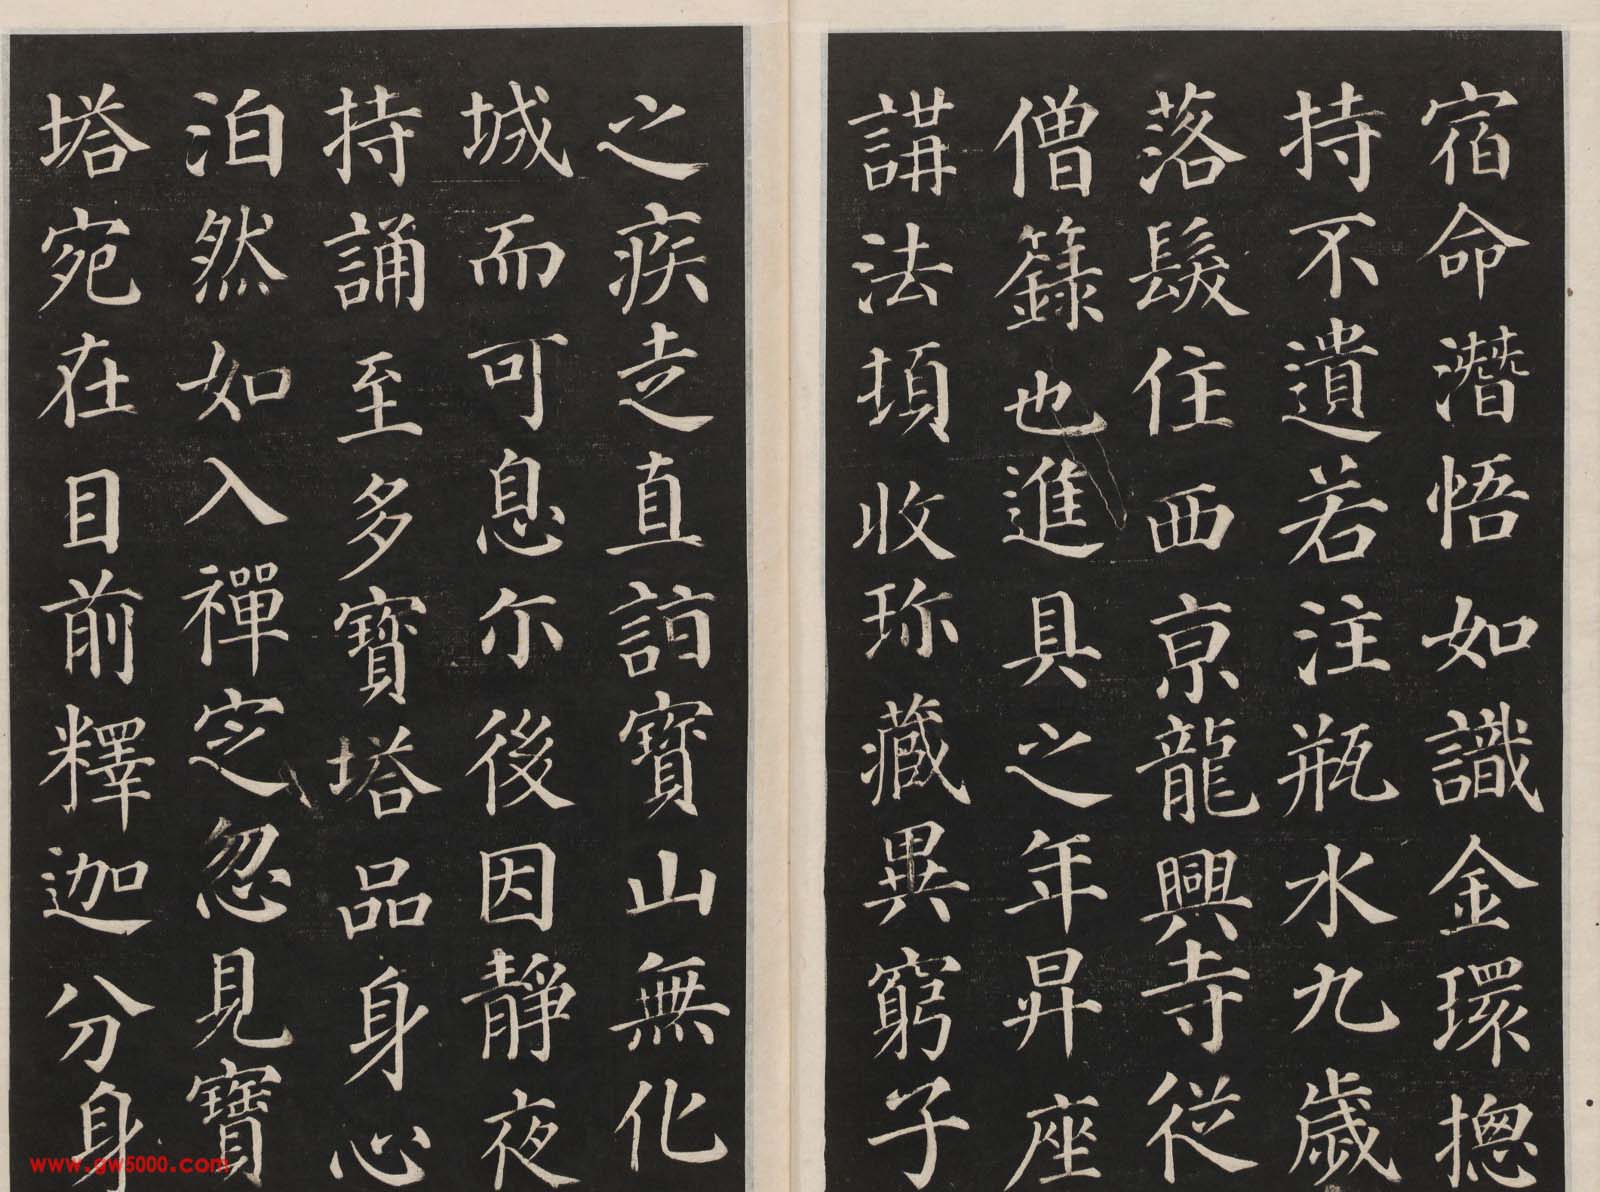 宿命潛悟如識金環揔
持不遺若注瓶水九歲
落髮住西京龍興寺從
僧籙也進具之年昇座
講法頃收珎藏異窮子
之疾走直詣寶山無化
城而可息尒後因靜夜
持誦至多寶塔品身心
泊然如入禪定忽見寶
塔宛在目前釋迦分身
www.gw5000.com